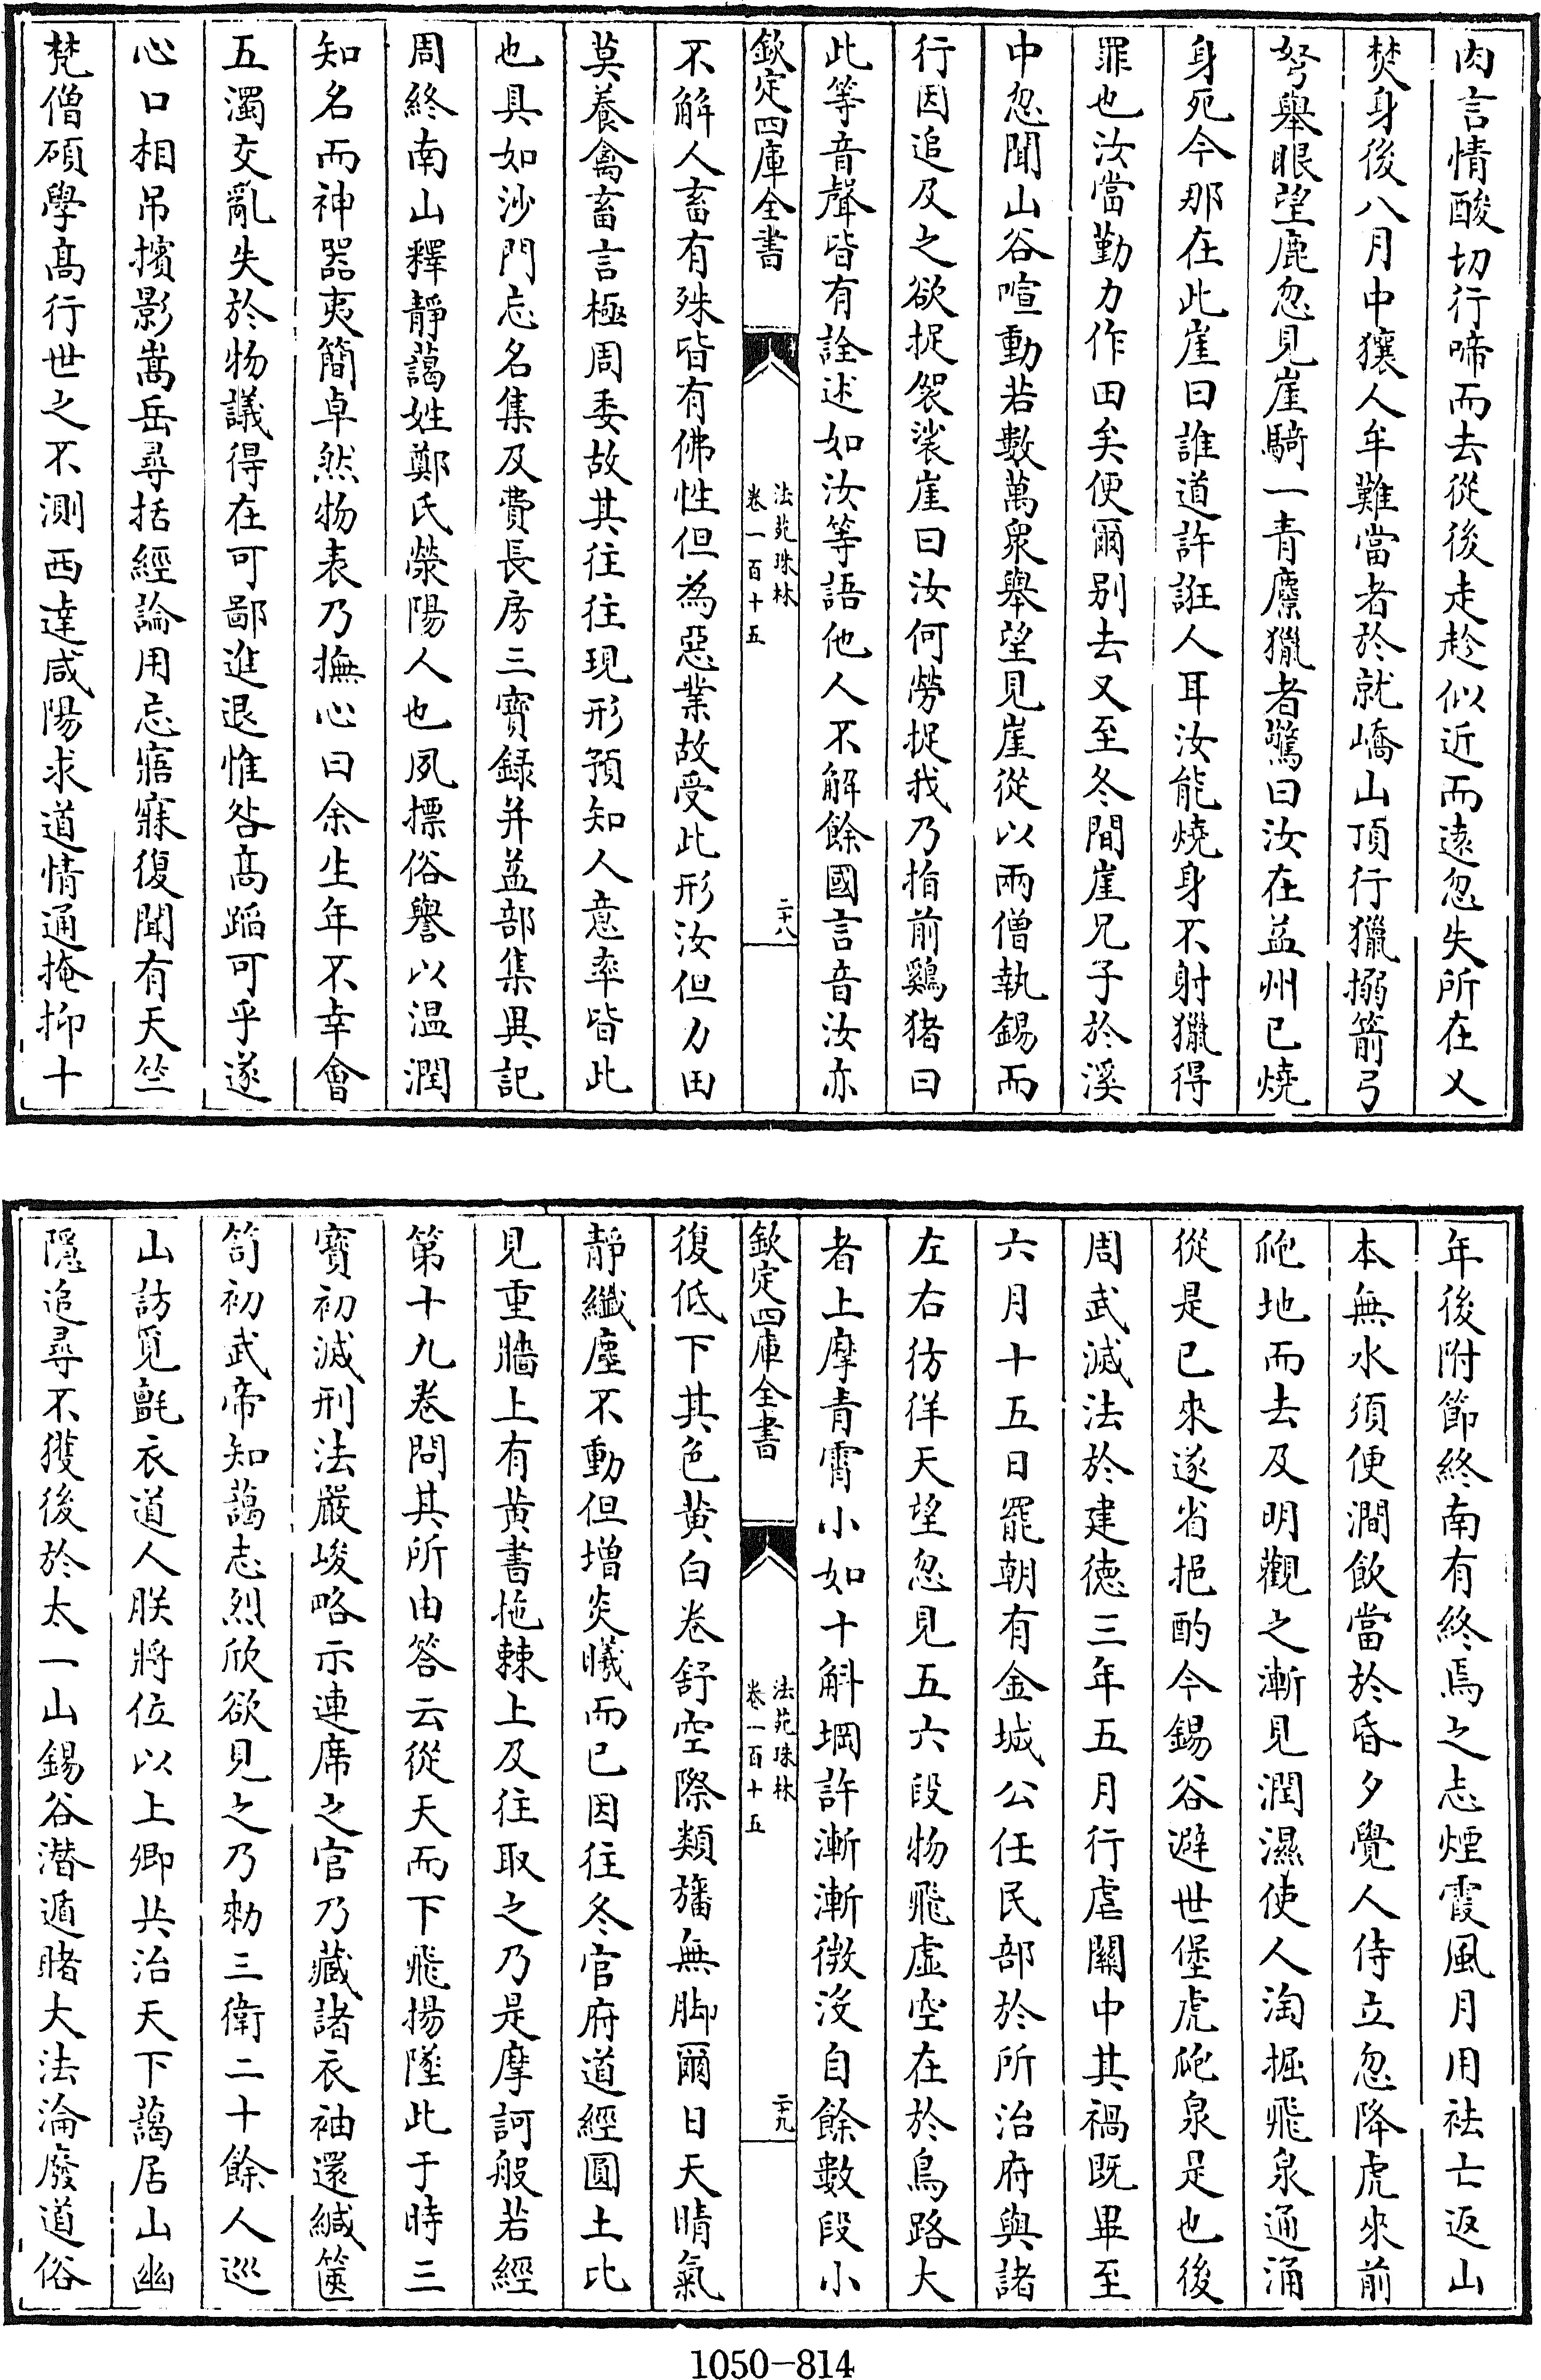 内言情酸切行啼而去從後走趁似近而遠忽失所在又
焚身後八月中獽人牟難當者於就嶠山頂行獵搦箭弓
弩舉眼望鹿忽見崖騎一青麖獵者驚曰汝在益州已燒
身死今那在此崖曰誰道許誑人耳汝能燒身不射獵得
罪也汝當勤力作田矣便爾别去又至冬間崖兄子於溪
中忽聞山谷喧動若數萬衆舉望見崖從以兩僧執錫而
行因追及之欲捉袈裟崖曰汝何勞捉我乃指前鷄猪曰
此等音聲皆有詮述如汝等語他人不解餘國言音汝亦
欽定四庫全書
法苑珠林
卷一百十五
二十八
不解人畜有殊皆有佛性但為惡業故受此形汝但力田
莫養禽畜言極周委故其往往現形預知人意率皆此
也具如沙門忘名集及費長房三寶録并益部集異記
周終南山釋靜藹姓鄭氏滎陽人也夙摽俗譽以温潤
知名而神器夷簡卓然物表乃撫心曰余生年不幸會
五濁交亂失於物議得在可鄙進退惟咎高蹈可乎遂
心口相吊擯影嵩岳尋括經論用忘寤寐復聞有天竺
梵僧碩學高行世之不測西達咸陽求道情通掩抑十
年後附節終南有終焉之志煙霞風月用袪亡返山
本無水須便澗飲當於昏夕覺人侍立忽降虎來前
爮地而去及明觀之漸見潤濕使人淘掘飛泉通涌
從是已來遂省挹酌今錫谷避世堡虎爮泉是也後
周武滅法於建德三年五月行虐關中其禍既畢至
六月十五日罷朝有金城公任民部於所治府與諸
左右彷徉天望忽見五六段物飛虚空在於鳥路大
者上摩青霄小如十斛堈許漸漸微没自餘數段小
欽定四庫全書
法苑珠林
卷一百十五
二十九
復低下其色黄白卷舒空際類旛無脚爾日天晴氣
靜纖塵不動但增炎曦而已因往冬官府道經圓土北
見重牆上有黄書拖棘上及往取之乃是摩訶般若經
第十九卷問其所由答云從天而下飛揚墜此于時三
寶初滅刑法嚴峻略示連席之官乃藏諸衣袖還緘篋
笥初武帝知藹志烈欣欲見之乃勑三衛二十餘人巡
山訪覓氈衣道人朕將位以上卿共治天下藹居山幽
隱追尋不獲後於太一山錫谷潜遁睹大法淪廢道俗
1050-814